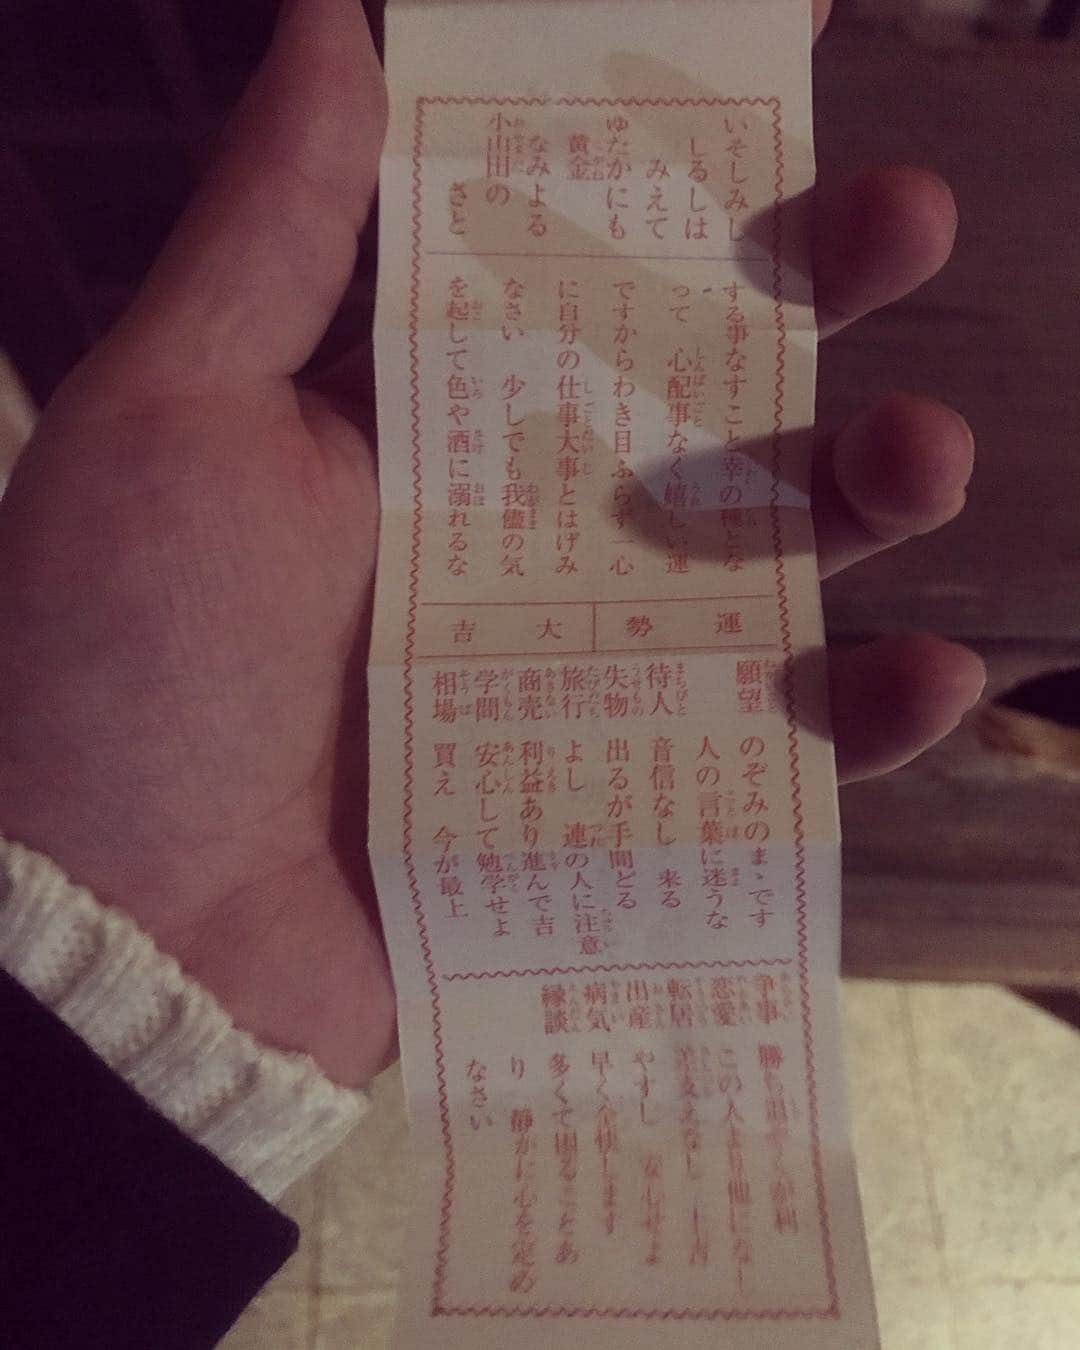 いそしみし
しるしは
みえて
ゆたかにも
黄金
なみよる
小山田の
さと
する事なすこと幸の種とな
って 心配事なく嬉しい運
ですからわき目ふらず一心
に自分の仕事大事とはげみ
なさい 少しでも我儘の気
を起して色や酒に溺れるな
運勢 大吉
願望 のぞみのまゝです
人の言葉に迷うな
待人 音信なし 来る
失物 出るが手間どる
旅行 よし 連の人に注意
商売 利益あり進んで吉
学問 安心して勉学せよ
相場 買え 今が最上
争事 勝ち
恋愛 この人より他になし
転居 差支えなし
出産 やすし 安心せよ
病気 早く全快します
縁談 多くて困ることあ
り 静かに心を定め
なさい